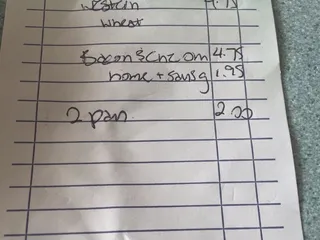 westcin 4.75
wheat
Bacon $ chz om 4.75
home + sausg 1.95
2 pan 2.00